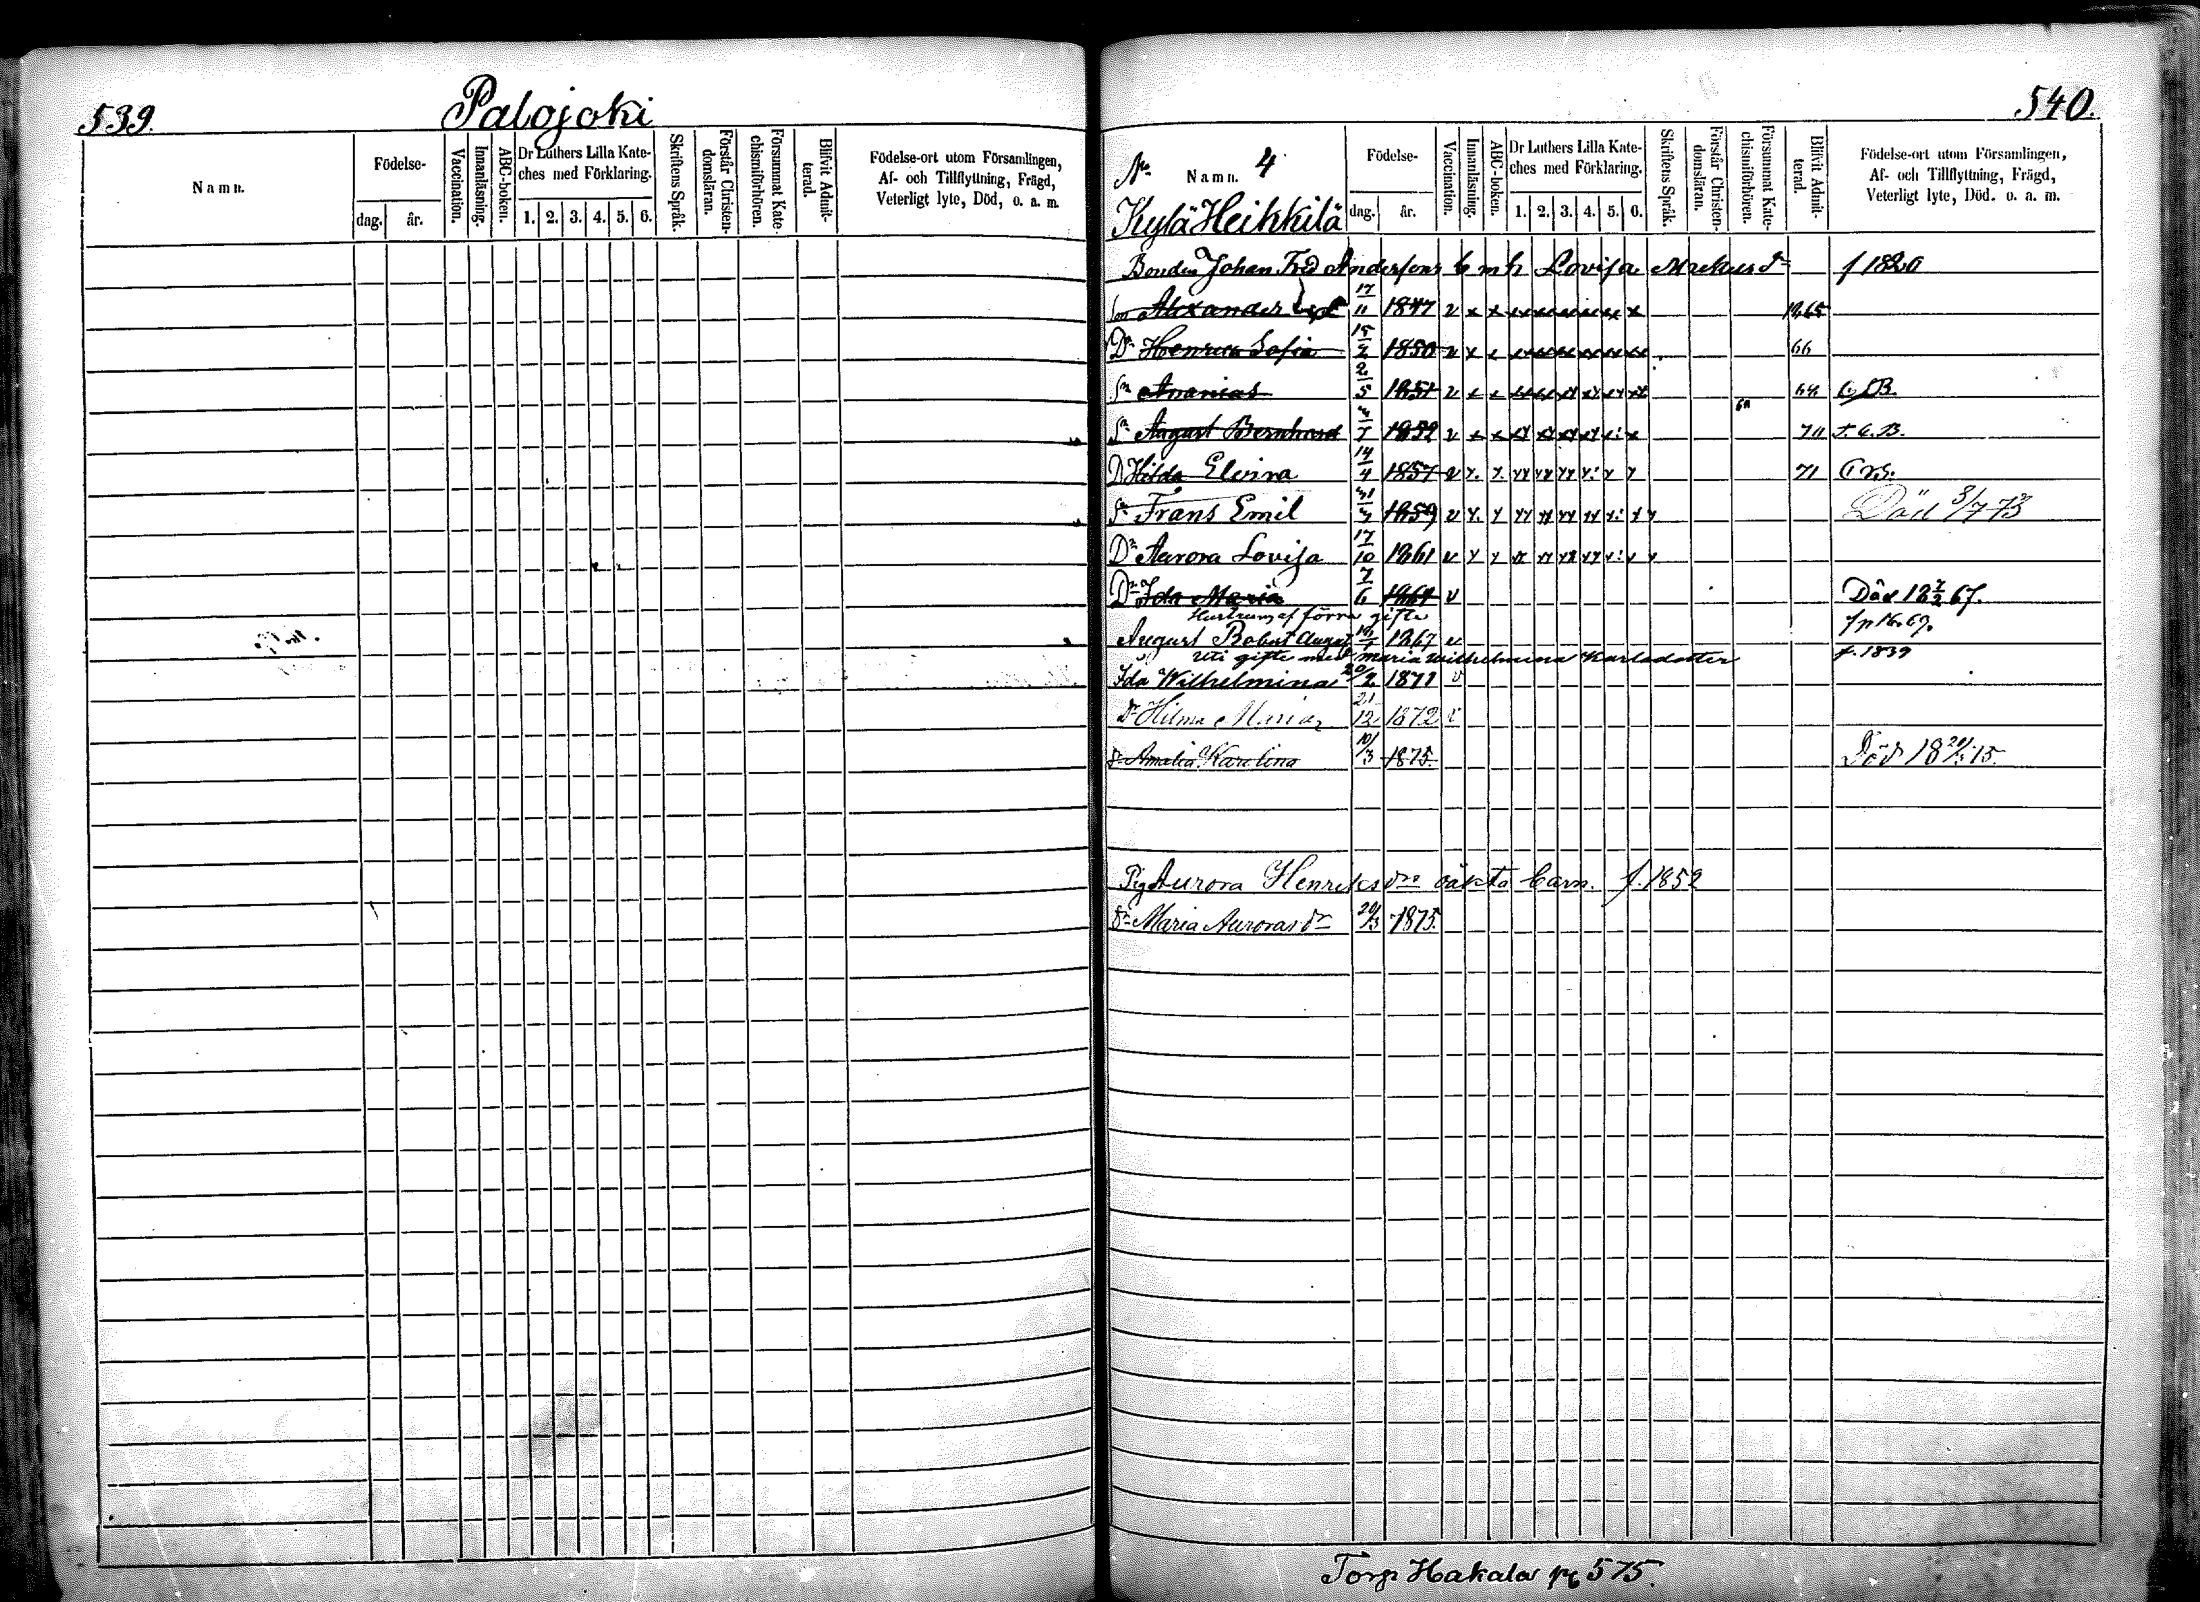 539.
Palojoki
Namn.
Födelse-
dag.
år.
Vaccination.
Innanläsning.
ABC-boken.
Dr Luthers Lilla Kate-
ches med Förklaring.
1. 2. 3. 4. 5. 6.
Skriftens Språk.
Förstår Christen-
domsläran.
Försummat Kate-
chismiförhören.
Blifvit Admit-
terad.
Födelse-ort utom Församlingen,
Af- och Tillflyttning, Frägd,
Veterligt lyte, Död, o. a. m.
540.
No 4
Namn.
Kylä Heikkilä
Födelse-
dag.
år.
Vaccination.
Innanläsning.
ABC-boken.
Dr Luthers Lilla Kate-
ches med Förklaring.
1. 2. 3. 4. 5. 6.
Skriftens Språk.
Förstår Christen-
domsläran.
Försummat Kate-
chismiförhören.
Blifvit Admit-
terad.
Födelse-ort utom Församlingen,
Af- och Tillflyttning, Frägd,
Veterligt lyte, Död. o. a. m.
Bonden Johan Fred Andersons b m h Lovisa f 1820
Son Alexander 17/11 1847 v x x 1865
Dr Henrica Sofia 15/2 1850 v x x 66
Sn Ananias 2/5 1851 v x x
Sn August Bernhard 1852 v x x
Dr Hilda Elvira 14/4 1857 v 71
Sn Frans Emil 1859 v Död 3/7 73
Dr Aurora Lovisa 17/10 1861 v
Dr Ida Maria 7/6 1864 v Död 18 7/2 67.
Hustrun af förra gifte
August Robert August 1867 v
Uti gifte med Maria Wilhelmina Karlsdotter f. 1839
Ida Wilhelmina 20/2 1871 v
Dr Hilma Maria 21/12 1872 v
Dr Amalia Karolina 10/3 1875.
Pig Aurora Henriks dr oäkta barn. f. 1852
Dr Maria Auroras dr 20/3 1875.
Torp Hakala pg 575.